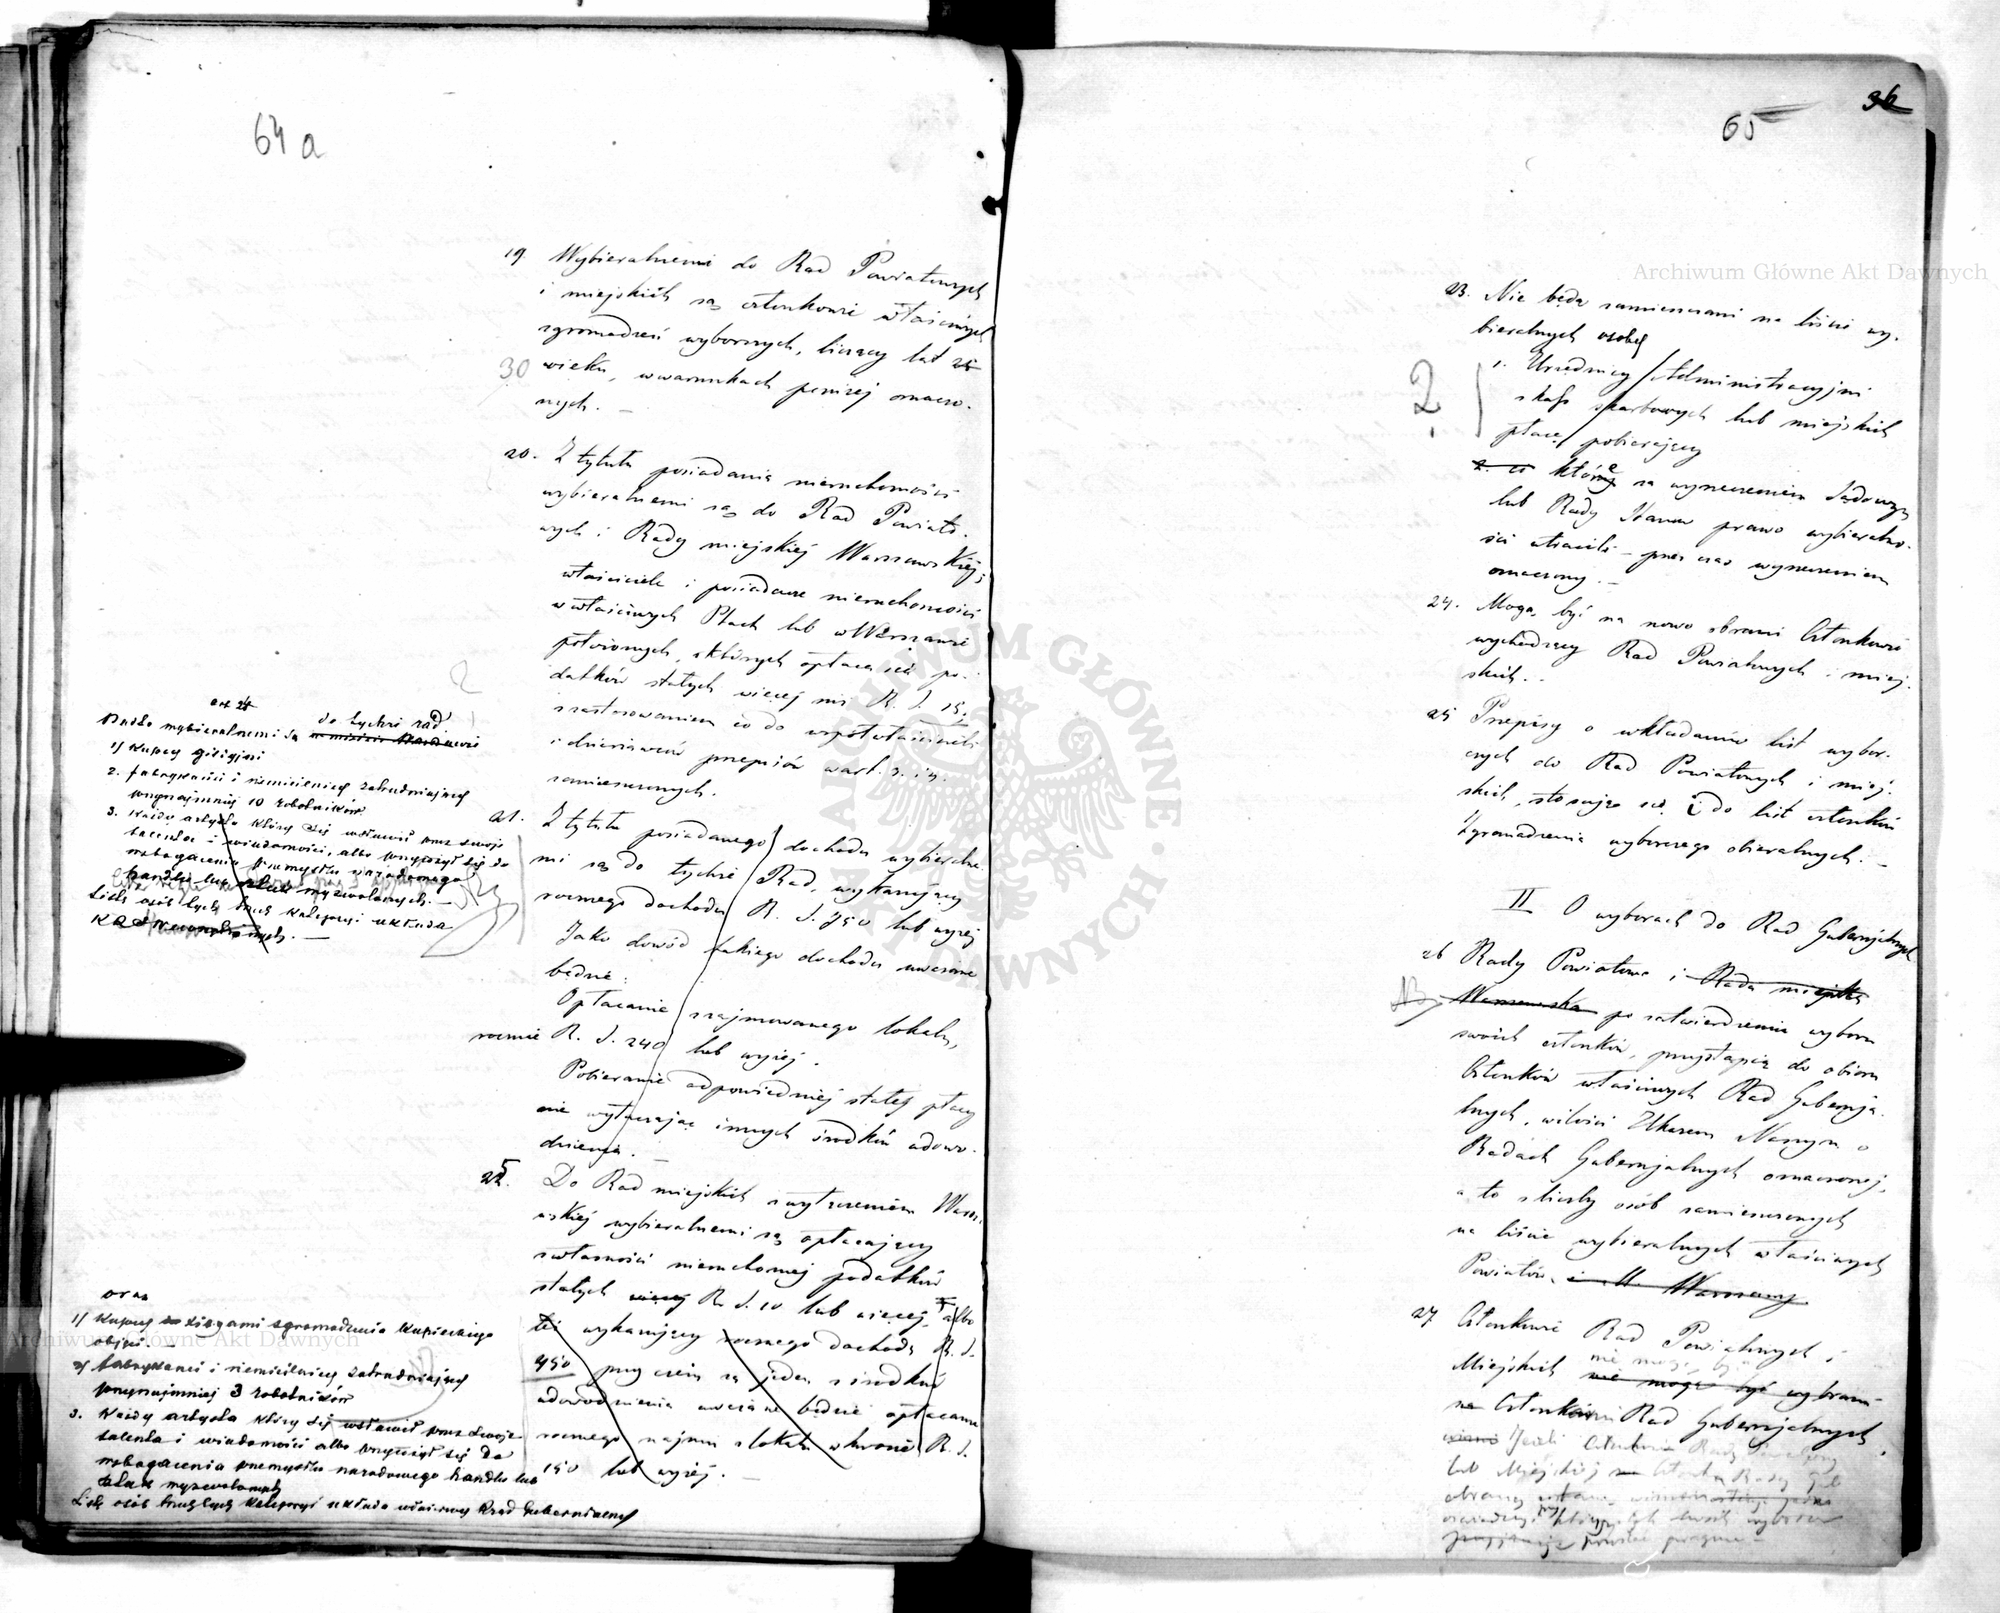 64 a
19 Wybieralnemi do Rad Powiatowych
i miejskich są członkowie właściwych
zgromadzeń wyborczych, liczący lat 25
30 wieku, w warunkach poniżej ozna­czo-
nych. —
20. Z tytułu posiadania nieruchomości
wybieralnemi są do Rad Powiato-
wych i Rady miejskiej Warszawskiej;
właściciele i posiadacze nieruchomości
w właściwych Ptach lub w Warszawie
położonych, z których opłaca się po-
datków stałych więcej niż R. S. 15,
z zastosowaniem co do współwłaścicieli
i dzierżawców przepisów w art. 3. i 4.
zamieszczonych.
21. Z tytułu posiadanego dochodu wybieralne-
mi są do tychże Rad, wykazujący
rocznego dochodu R. S. 750 lub wyżej
Jako dowód takiego dochodu uważane
będzie:
Opłacanie z najmowanego lokalu,
rocznie R. S. 240 lub wyżej.
Pobieranie odpowiedniej stałej płacy
nie wyłączając innych środków udowo-
dnienia. —
22. Do Rad miejskich z wyłączeniem Warsza-
wskiej wybieralnemi są opłacający
z własności nieruchomej podatków
stałych więcej R. S. 10 lub więcej, albo
też wykazujący rocznego dochodu R. S.
450 przy czem za jeden z środków
udowodnienia uważane będzie opłacanie
rocznego najmu z lokalu w kwocie R. S.
150 lub wyżej. —
art 21
Nadto wybieralnemi są do tychże rad
w mieście Warszawie
1) Kupcy gildyjni
2. fabrykanci i rzemieślnicy zatrudniający
przynajmniej 10 robotników
3. Każdy artysta który się wsławił przez swoje
talenta i wiadomości, albo przyłożył się do
wzbogacenia przemysłu narodowego
handlu lub sztuk wyzwolonych. —
Listę osób tych trzech kategoryi układa
oraz
1) Kupcy księgami zgromadzenia kupieckiego
objęci. —
2) Fabrykanci i rzemieślnicy zatrudniający
przynajmniej 3 robotników
3. Każdy artysta który się wsławił przez swoje
talenta i wiadomości albo przyłożył się do
wzbogacenia przemysłu narodowego handlu lub
sztuk wyzwolonych
Listę osób trzech tych kategoryi układa właściwy Rząd Gubernialny
36
65
23. Nie będą zamieszczeni na liście wy-
bieralnych osoby
1. Urzędnicy Administracyjni
z kass skarbowych lub miejskich
płacę pobierający
? 2. które za wyrzeczeniem Sądowym
lub Rady Stanu prawo wybieralno-
ści utracili – przez czas wyrzeczeniem
oznaczony. —
24. Mogą być na nowo obrani Członkowie
wychodzący Rad Powiatowych i miej-
skich.
25 Przepisy o układaniu list wybor-
czych do Rad Powiatowych i miej-
skich, stosują się i do list członków
Zgromadzenia wyborczego obieralnych. —
II O wyborach do Rad Gubernjalnych
26 Rady Powiatowe i Rada miejska
Warszawska po zatwierdzeniu wyboru
swoich członków, przystąpią do obioru
Członków właściwych Rad Gubernja-
lnych, w ilości Ukazem Naszym o
Radach Gubernjalnych oznaczonej,
a to z liczby osób zamieszczonych
na liście wybieralnych właściwych
Powiatów, i M. Warszawy
27 Członkowie Rad Powiatowych i
nie mogą być
Miejskich nie mogą być wybrani
na Członków Rad Gubernjalnych.
Jeżeli Członkowie Rady Powiatowej
lub Miejskiej Członkiem Rady Gub
Archiwum Główne Akt Dawnych
Archiwum Główne Akt Dawnych
ARCHIWUM GŁÓWNE AKT DAWNYCH